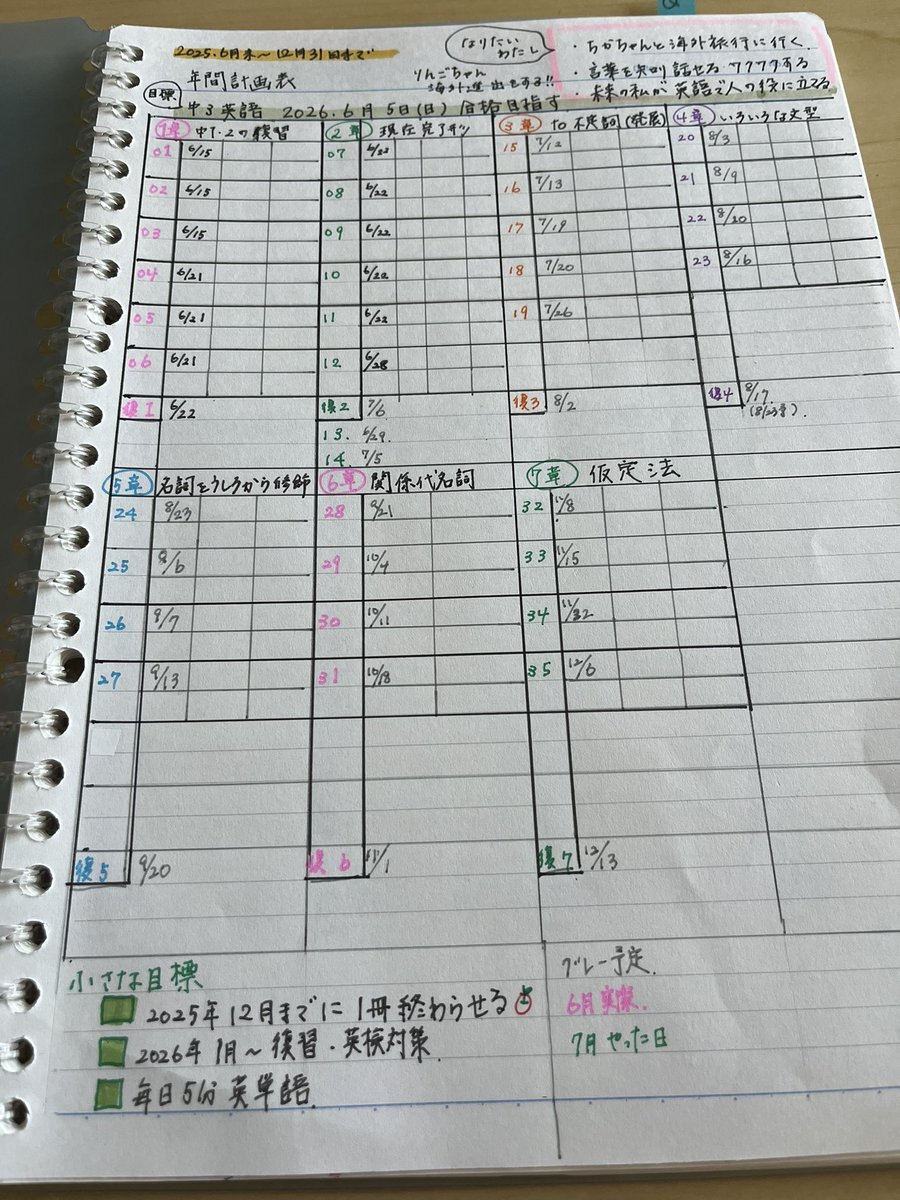 2025.6月末〜12月31日まで
なりたいわたし
・ちかちゃんと海外旅行に行く
・言葉を知り話せるワクワクする
・未来の私が英語で人の役に立てる
年間計画表
りんごちゃん
海外進出をする!!
目標 中3英語 2026.6月5日(日)合格目指す
1章 中1・2の復習
01 6/15
02 6/15
03 6/15
04 6/21
05 6/21
06 6/21
復1 6/22
2章 現在完了
07 6/22
08 6/22
09 6/22
10 6/22
11 6/22
12 6/28
復2 7/6
13. 6/29.
14. 7/5
3章 to不定詞(発展)
15 7/12
16 7/13
17 7/19
18 7/20
19 7/26
復3 8/2
4章 いろいろな文型
20 8/3
21 8/9
22 8/20
23 8/16
復4 8/17
5章 名詞をうしろから修飾
24 8/23
25 /6
26 9/7
27 9/13
復5 9/20
6章 関係代名詞
28 9/21
29 10/4
30 10/11
31 10/18
復6 11/1
7章 仮定法
32 11/8
33 11/15
34 11/32
35 12/6
復7 12/13
小さな目標
2025年12月までに1冊終わらせる
2026年1月〜復習・英検対策
毎日5分英単語
グレー予定
6月実際.
7月やった日